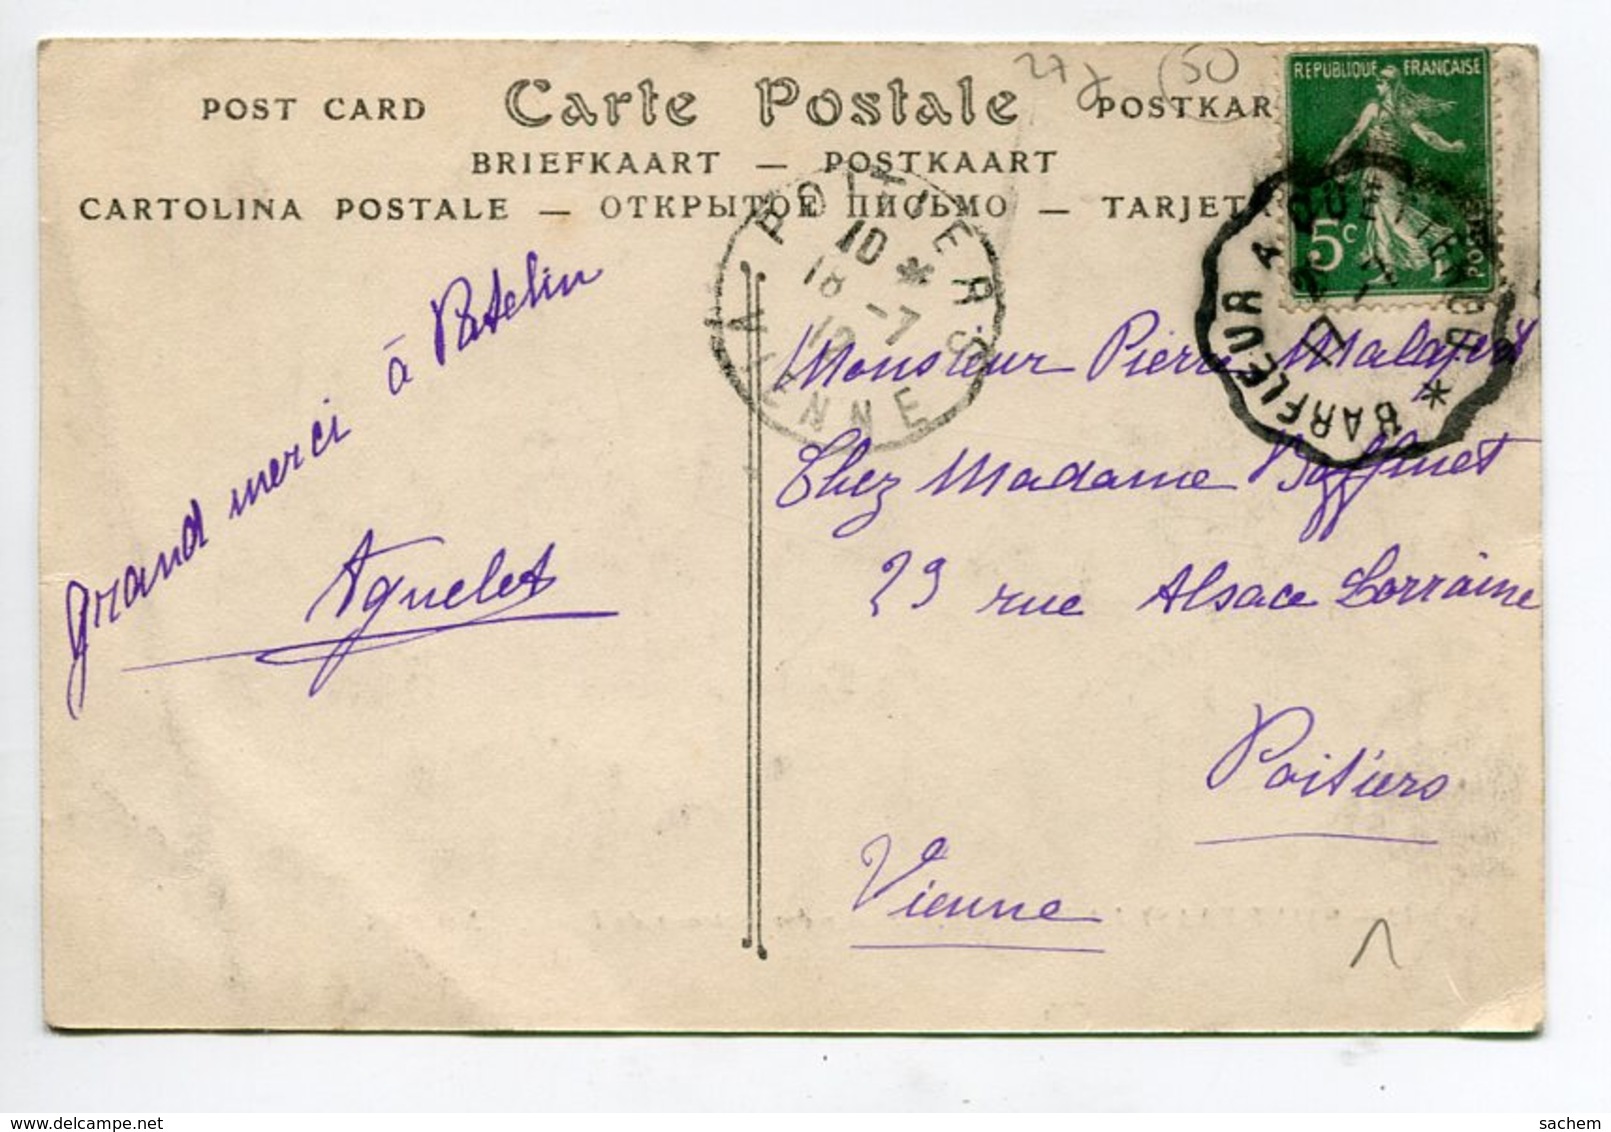 27 J
50
POST CARD Carte Postale POSTKAR
BRIEFKAART — POSTKAART
CARTOLINA POSTALE — ОТКРЫТОЕ ПИСЬМО — TARJETA
REPUBLIQUE FRANÇAISE
5c
POSTES
BARFLEUR A QUETTEHOU *
17 -7
POITIERS
10 *
18 -7
12
VIENNE
Grand merci à Patelin
Aguelet
Monsieur Pierre
Chez Madame
29 rue Alsace Lorraine
Poitiers
Vienne
1
sachem
© delcampe.net